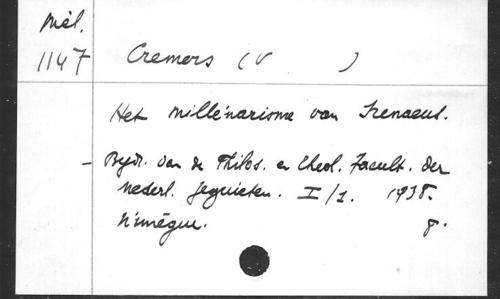 Mél.
1147 Cremers (V )
Het millénarisme van Irenaeus.
- Bijdr. van de Philos. en Theol. Facult. der
Nederl. Jezuieten. I/1. 1938.
Nimègue. 8.